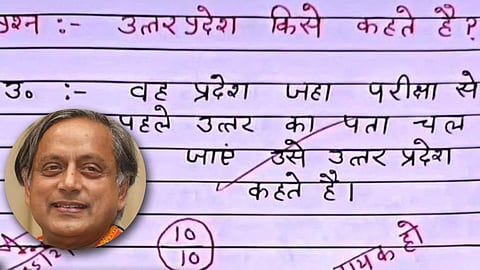 प्रश्न :- उत्तर प्रदेश किसे कहते है?
उ० :- वह प्रदेश जहा परीक्षा से
पहले उत्तर का पता चल
जाएं उसे उत्तर प्रदेश
कहते है।
10
10
लायक हो